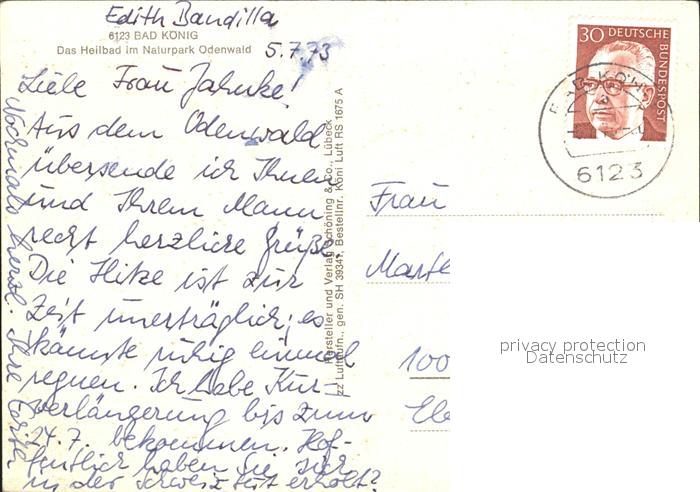 Edith Bandilla
6123 BAD KÖNIG
Das Heilbad im Naturpark Odenwald
5.7.73
Liebe Frau Jahnke!
Aus dem Odenwald
übersende ich Ihnen
und Ihrem Mann
recht herzliche Grüße.
Die Hitze ist zur
Zeit unerträglich; es
könnte ruhig einmal
regnen. Ich habe Kur-
verlängerung bis zum
24.7. bekommen. Hof-
fentlich haben Sie sich
in der Schweiz gut erholt?
Nochmals herzl. Ihre
Hersteller und Verlag Schöning & Co., Lübeck
Luftaufn., gen. SH 39341, Bestellnr. Köni Luft RS 1675 A
30 DEUTSCHE
BUNDESPOST
6123
Frau
Marth
100
privacy protection
Datenschutz